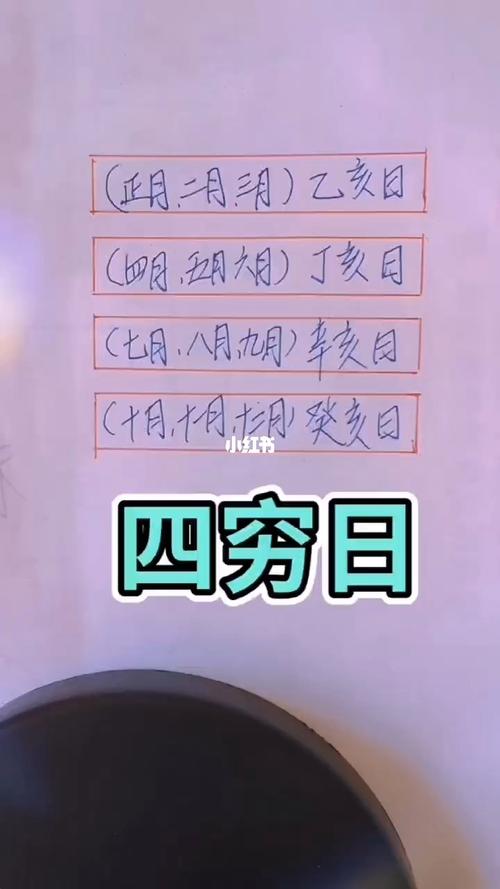 (正月、二月、三月)乙亥日
(四月、五月六月)丁亥日
(七月、八月、九月)辛亥日
(十月、十一月、十二月)癸亥日
小红书
四穷日